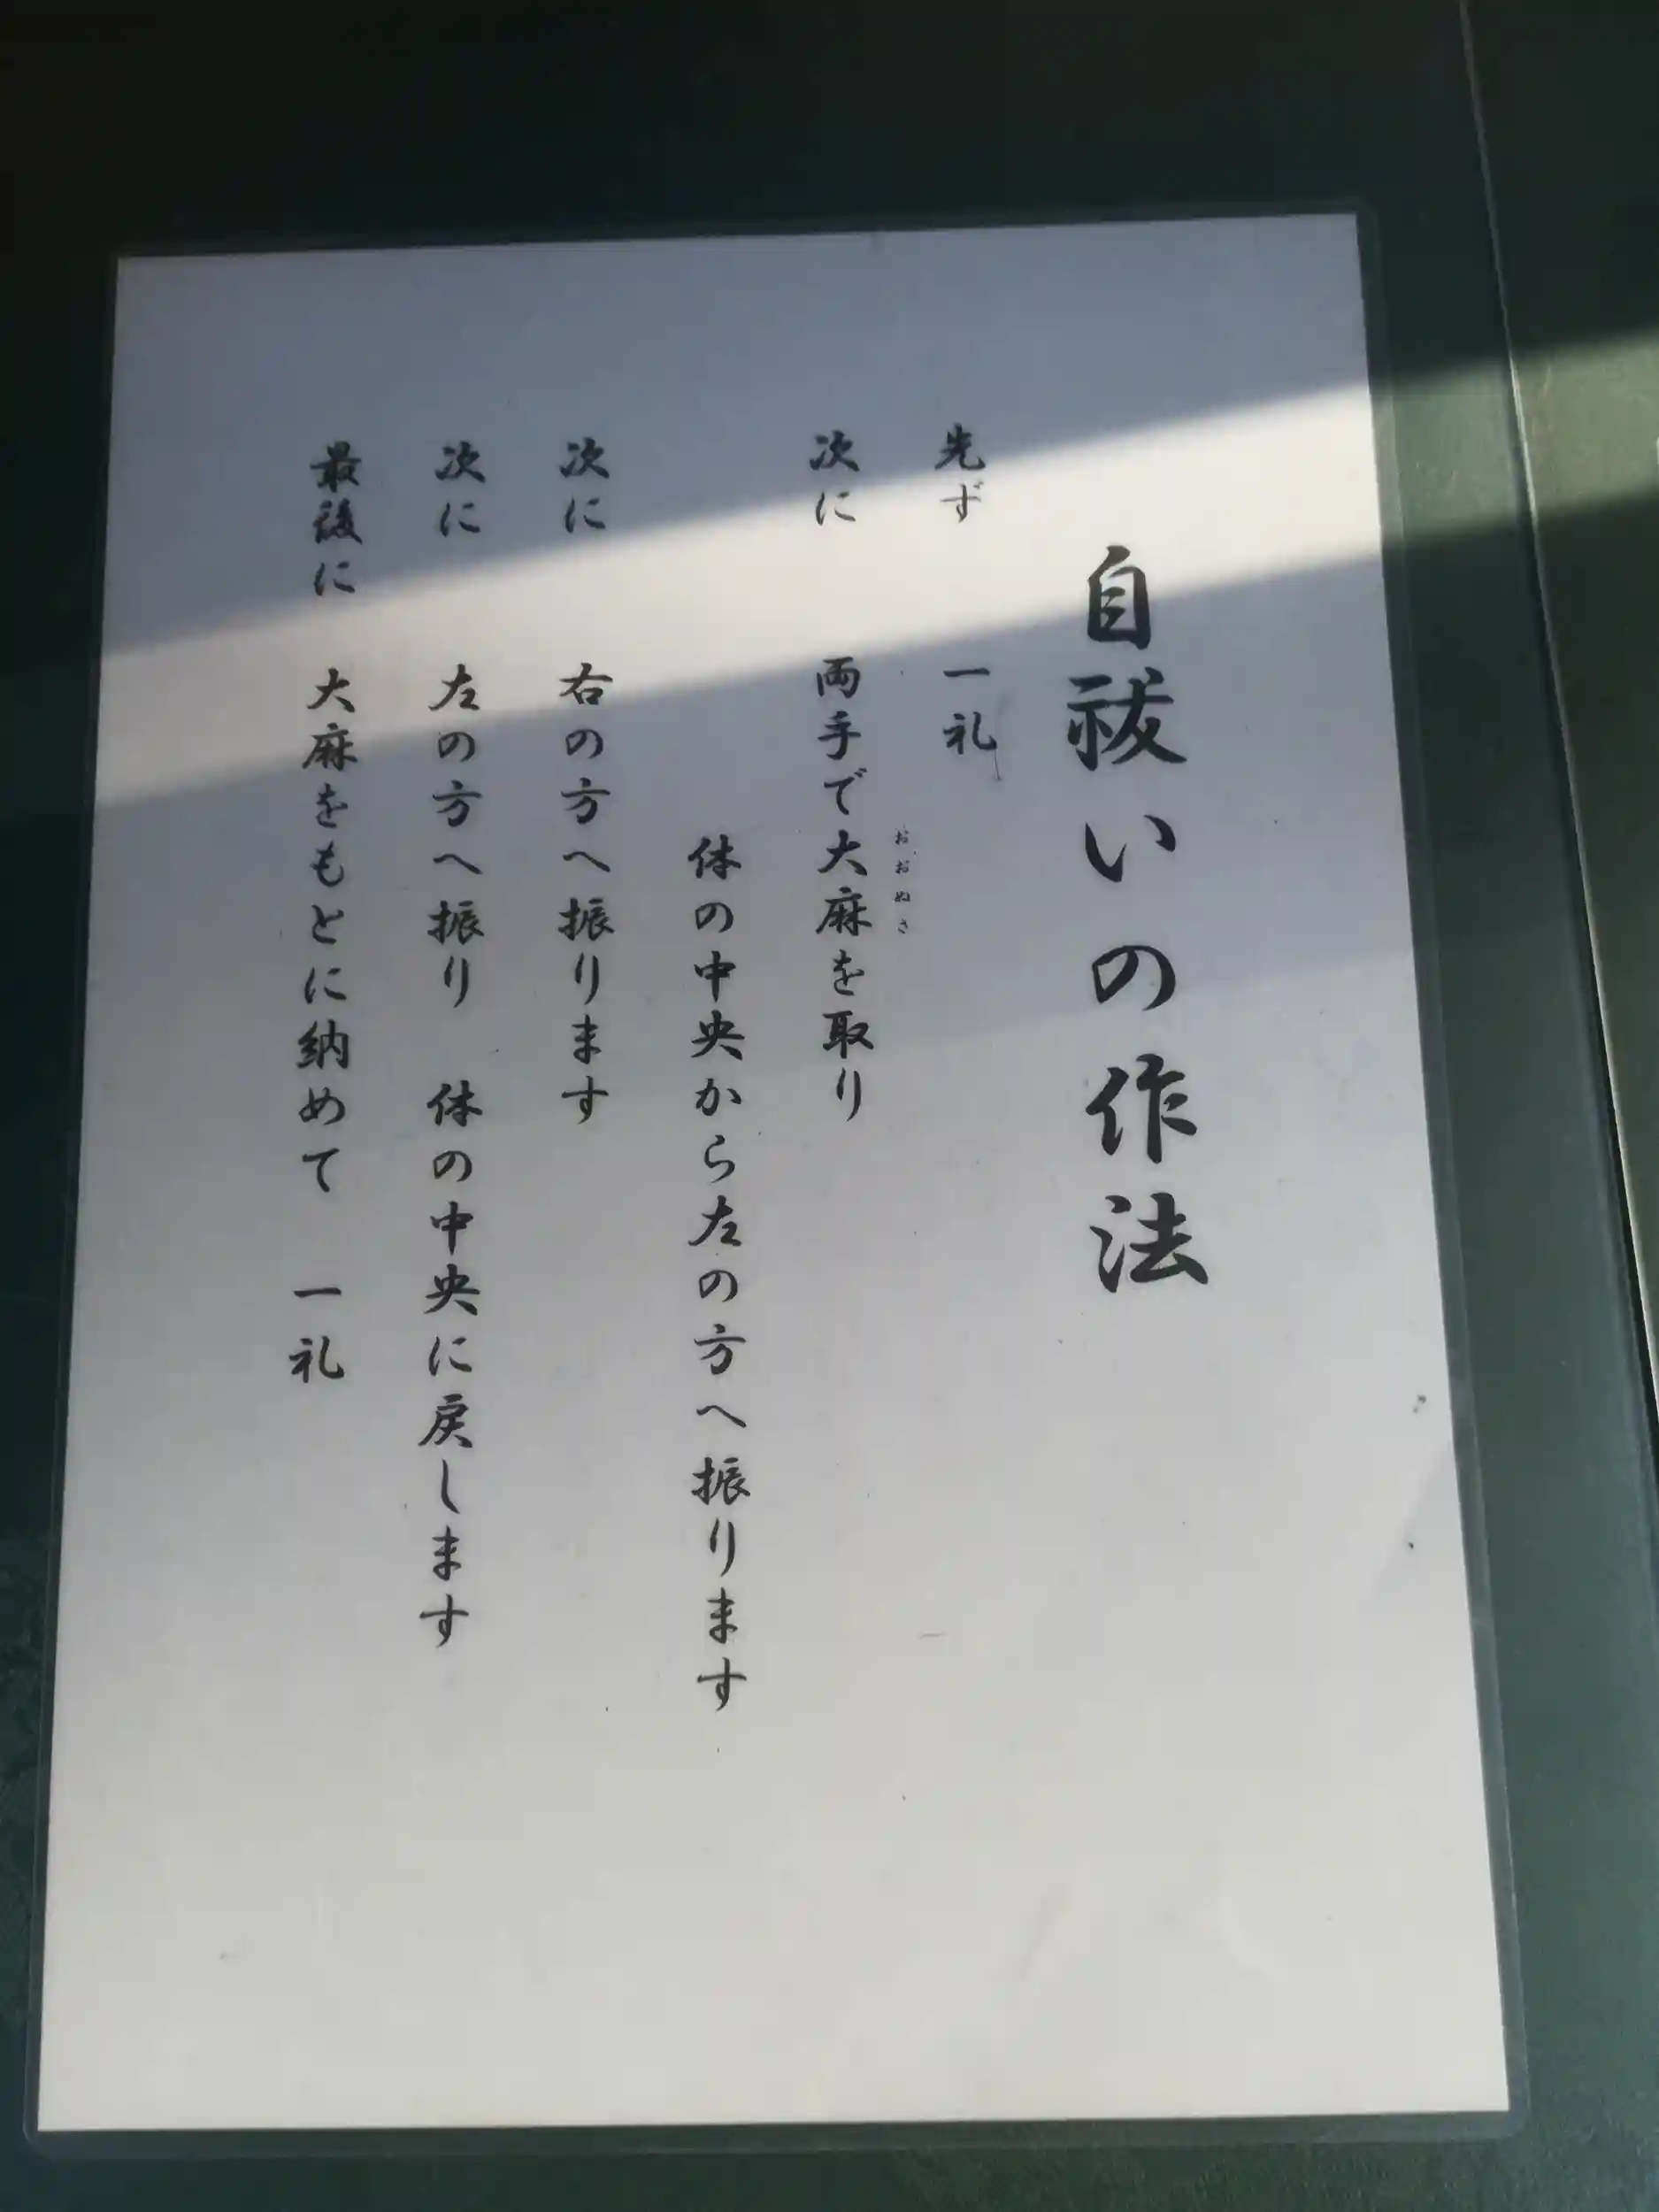 自祓いの作法
先ず　一礼
おおぬさ
次に　両手で大麻を取り
体の中央から左の方へ振ります
次に　右の方へ振ります
次に　左の方へ振り　体の中央に戻します
最後に　大麻をもとに納めて　一礼